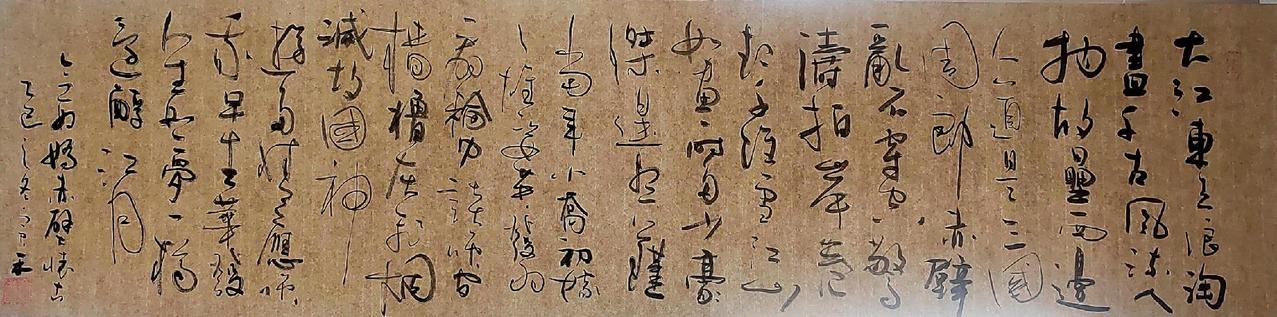 大江東去浪淘
盡千古風流人
物故壘西邊
人道是三國
周郎赤壁
亂石穿空驚
濤拍岸卷
起千堆雪江山
如畫一時多少豪
傑遥想公瑾
當年小喬初嫁
了雄姿英發羽
扇綸巾談笑間
檣櫓灰飛烟
滅故國神
遊多情應笑
我早生華發
人生如夢一樽
還酹江月
念奴嬌赤壁懷古
乙巳之冬